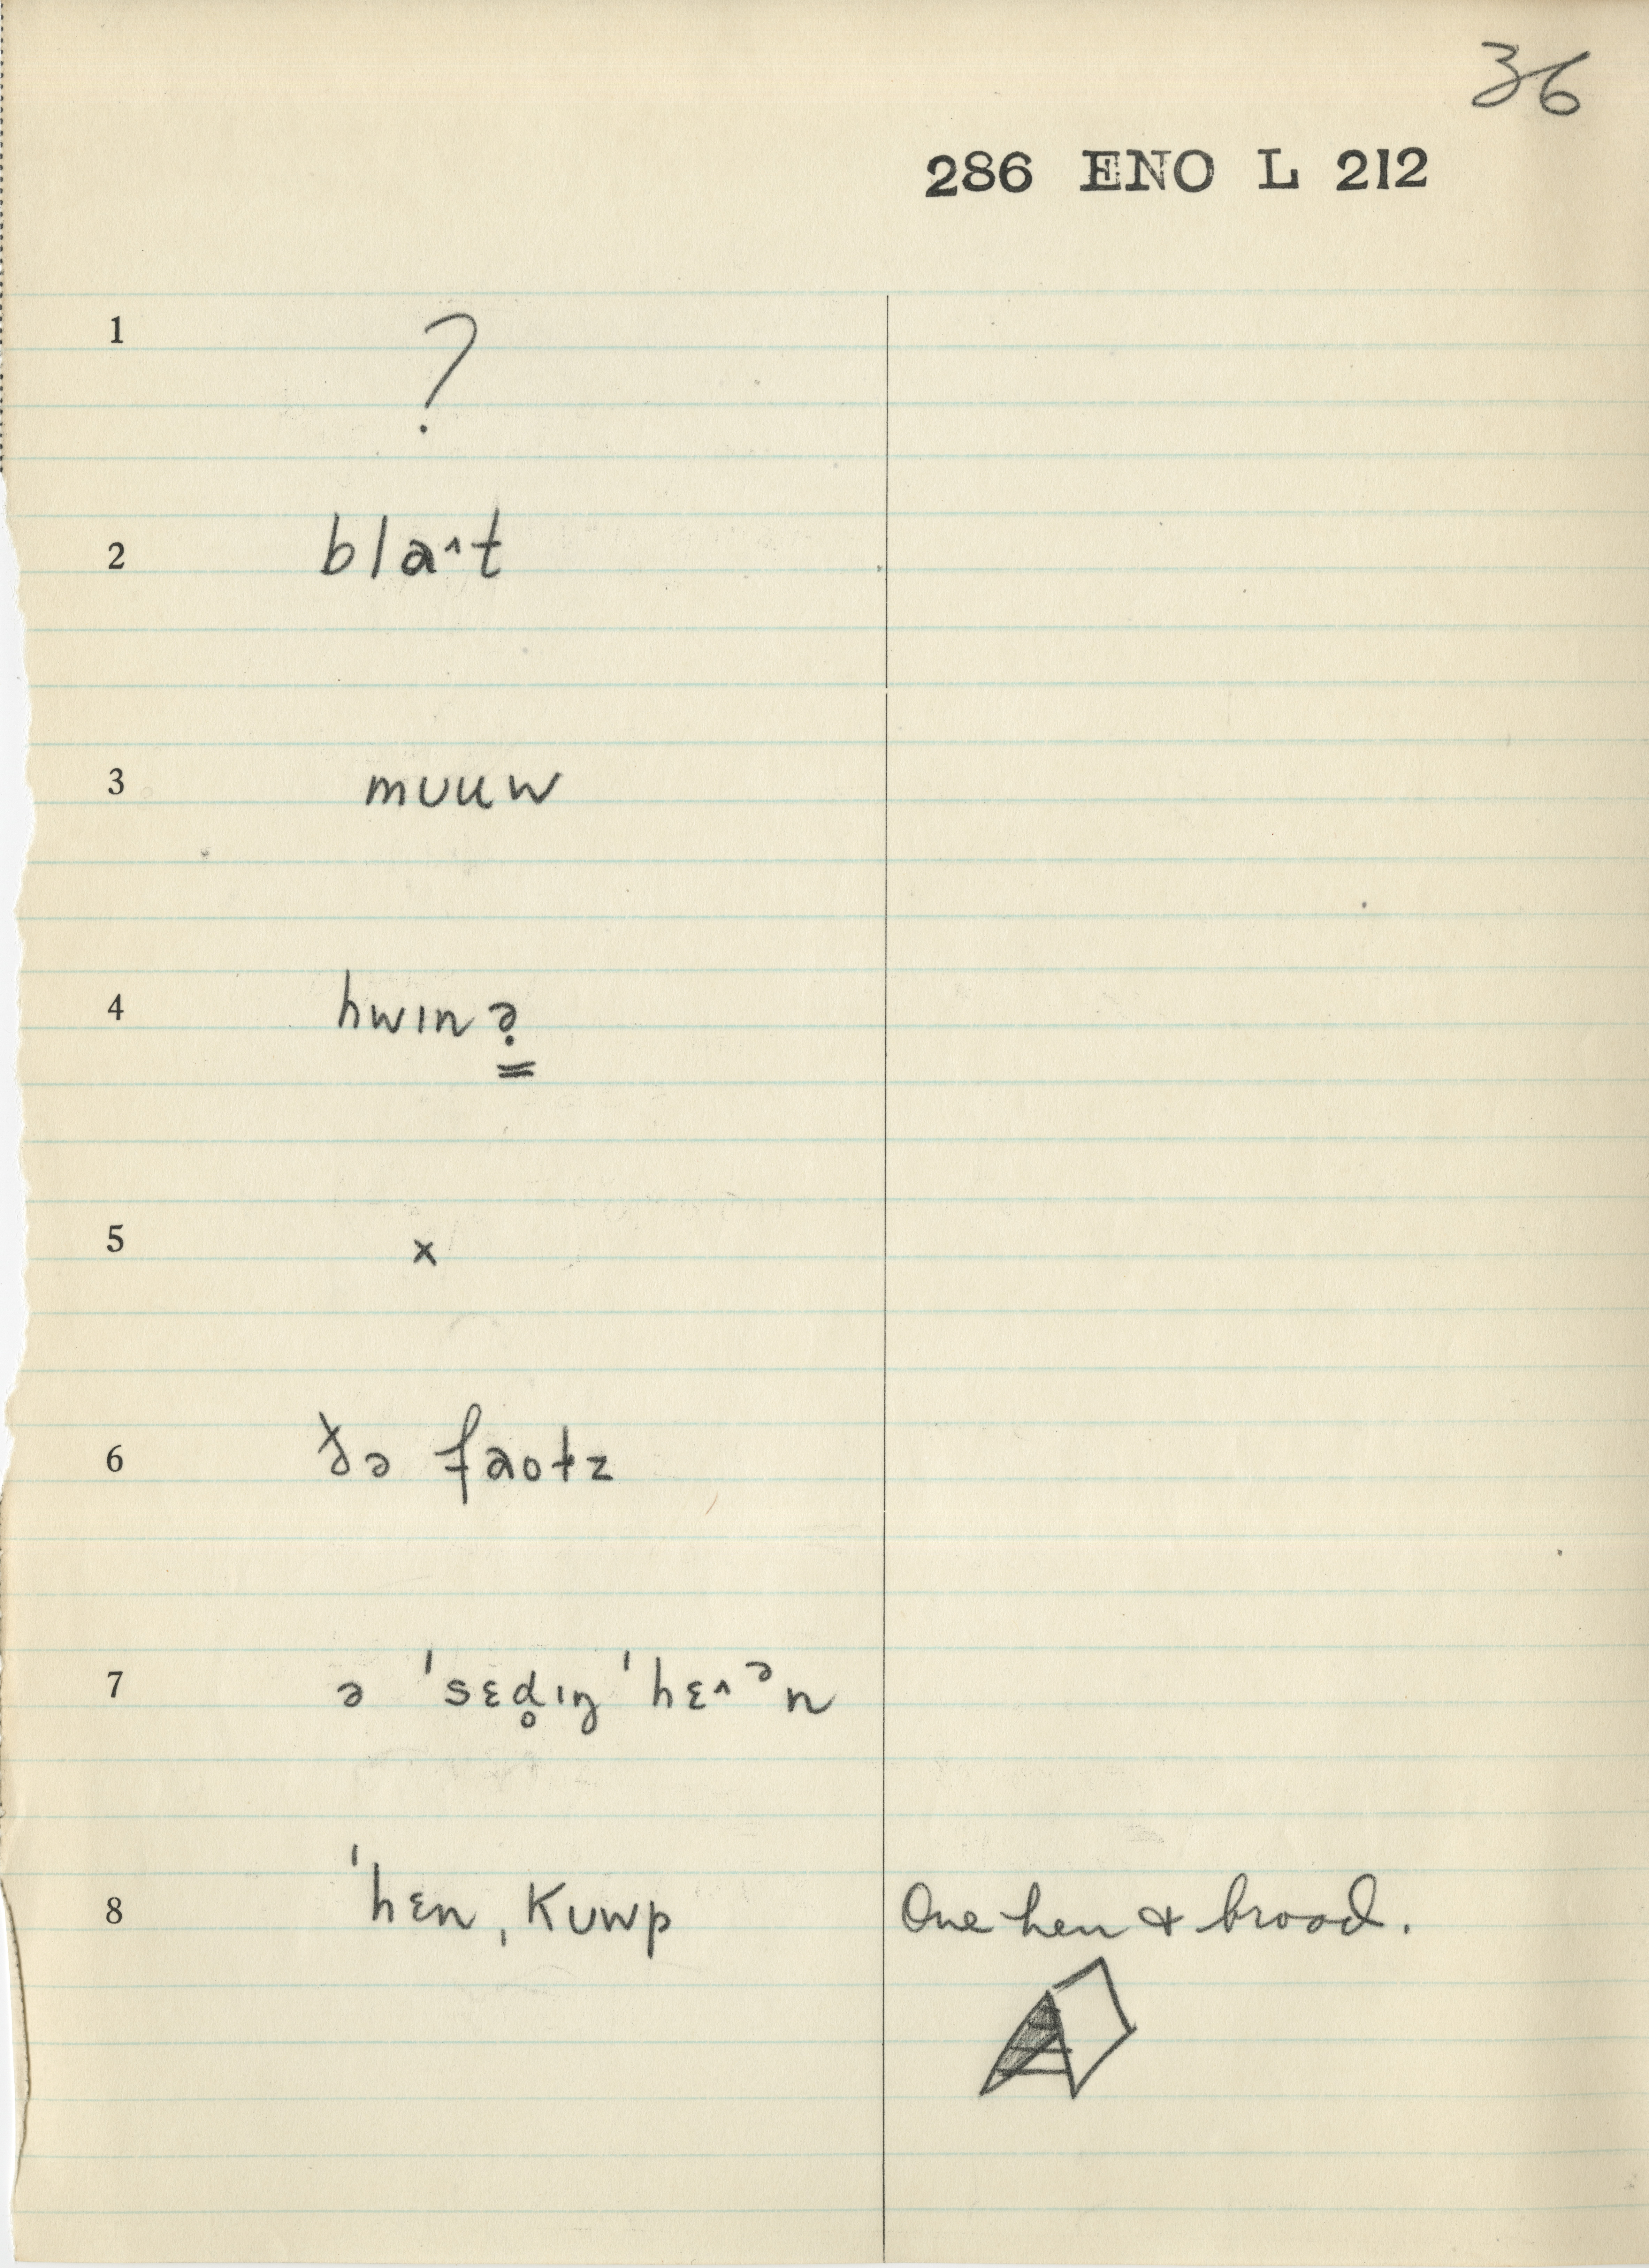 36
286 ENO L 212
1 ?
2 bla˄t
3 mʊuw
4 hwɪnə̣
5 x
6 ðə faotz
7 ə ˈsɛd̥ɪŋ ˈhɛ˄ᵊn
8 ˈhɛn ˌkʊwp One hen & brood.